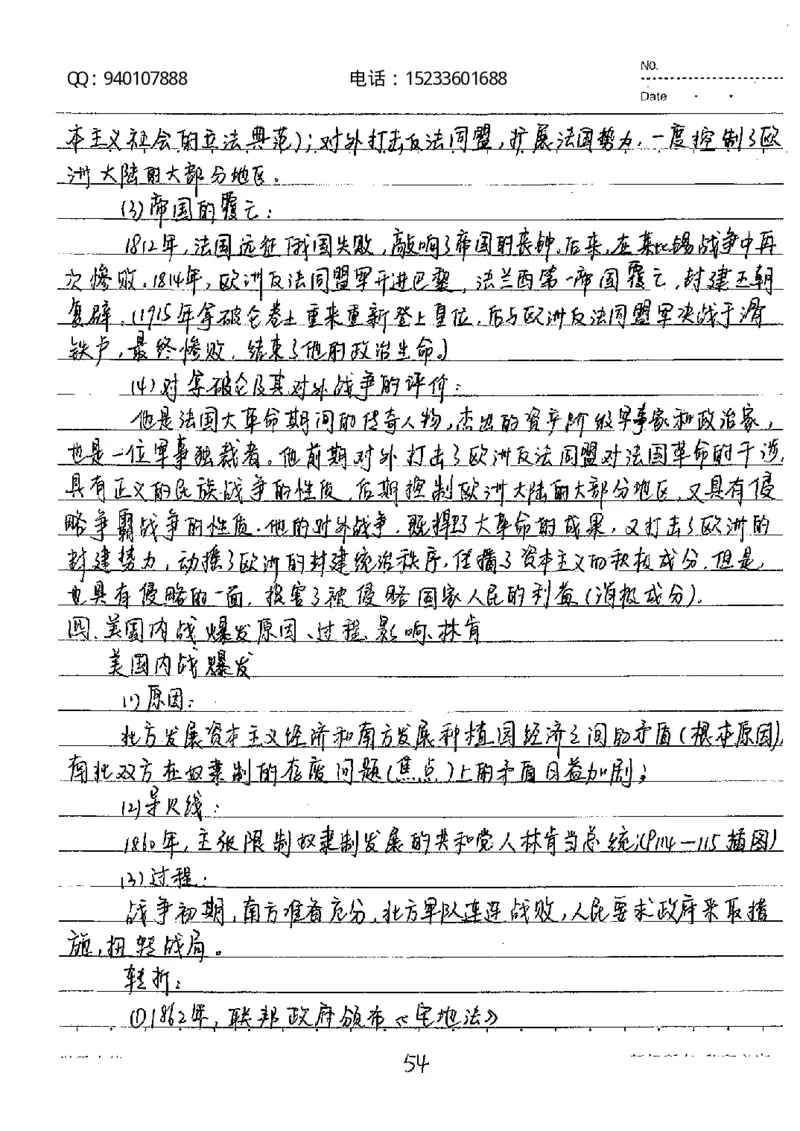 QQ：940107888
电话：15233601688
NO.
Date
本主义社会的立法典范)；对外打击反法同盟，扩展法国势力，一度控制了欧
洲大陆的大部分地区。
(3)帝国的覆亡：
1812年，法国远征俄国失败，敲响了帝国的丧钟。后来，在莱比锡战争中再
次惨败。1814年，欧洲反法同盟军开进巴黎，法兰西第一帝国覆亡，封建王朝
复辟。(1915年拿破仑卷土重来重新登上皇位，后与欧洲反法同盟军决战于滑
铁卢，最终惨败，结束了他的政治生命。)
(4)对拿破仑及其对外战争的评价：
他是法国大革命期间的传奇人物，杰出的资产阶级军事家和政治家，
也是一位军事独裁者。他前期对外打击了欧洲反法同盟对法国革命的干涉，
具有正义的民族战争的性质，后期控制欧洲大陆的大部分地区，又具有侵
略争霸战争的性质。他的对外战争，既捍卫了大革命的成果，又打击了欧洲的
封建势力，动摇了欧洲的封建统治秩序，传播了资本主义的积极成分。但是，
也具有侵略的一面，损害了被侵略国家人民的利益(消极成分)。
四、美国内战爆发原因、过程、影响、林肯
美国内战爆发
(1)原因：
北方发展资本主义经济和南方发展种植园经济之间的矛盾(根本原因)，
南北双方在奴隶制的存废问题(焦点)上的矛盾日益加剧；
(2)导火线：
1860年，主张限制奴隶制发展的共和党人林肯当总统；(P114—115插图)
(3)过程：
战争初期，南方准备充分，北方军队连连战败，人民要求政府采取措
施，扭转战局。
转折：
①1862年，联邦政府颁布《宅地法》
54